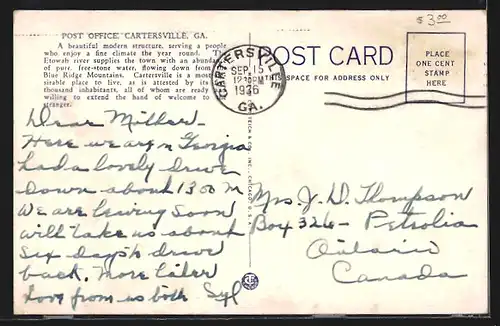 $3.00
POST OFFICE, CARTERSVILLE, GA.
A beautiful modern structure, serving a people
who enjoy a fine climate the year round. The
Etowah river supplies the town with an abundance
of pure, free-stone water, flowing down from
Blue Ridge Mountains. Cartersville is a most
sirable place to live, as is attested by its
thousand inhabitants, all of whom are ready
willing to extend the hand of welcome to
stranger.
CARTERSVILLE
SEP 15
12 PM
1936
GA.
POST CARD
THIS SPACE FOR ADDRESS ONLY
PLACE
ONE CENT
STAMP
HERE
Dear Mother -
Here we are in Georgia
had a lovely drive
down about 1300 m
We are leaving soon
will take us about
six days drive
back. More later
Love from us both Syl
Mrs J. D. Thompson
Box 326 - Petrolia
Ontario
Canada
TEICH & CO., INC., CHICAGO, U.S.A.